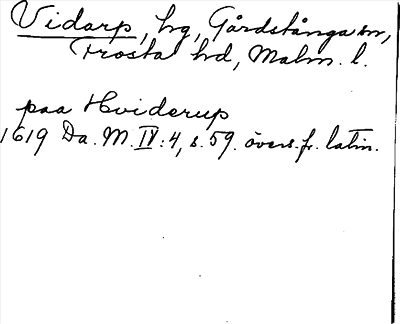 Vidarp, hg, Gårdstånga sn,
Frosta hd, Malm. l.
paa Hviderup
1619 Da. M. IV: 4, s. 59. övers. fr. latin.